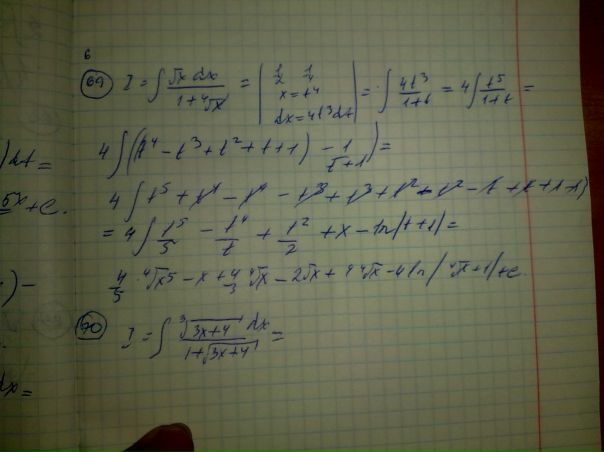 6
69 I = ∫ √x dx / 1+⁴√x = | 1/2 1/4 x = t⁴ dx = 4t³dt | = ∫ 4t³ / 1+t = 4∫ t⁵ / 1+t =
4∫ (t⁴ - t³ + t² + t + 1) - 1 / t+1 ) =
4∫ t⁵ + t⁴ - t⁴ - t³ + t³ + t² - t² - t + t + 1 - 1)
= 4∫ t⁵/5 - t⁴/t + t²/2 + x - ln|t+1| =
4/5 · ⁴√x⁵ - x + 4/3 ⁴√x - 2√x + 4 ⁴√x - 4 ln| ⁴√x+1| + c.
70 I = ∫ ³√3x+4 dx / 1+√3x+4 =
)dt =
5x + c.
) -
dx =